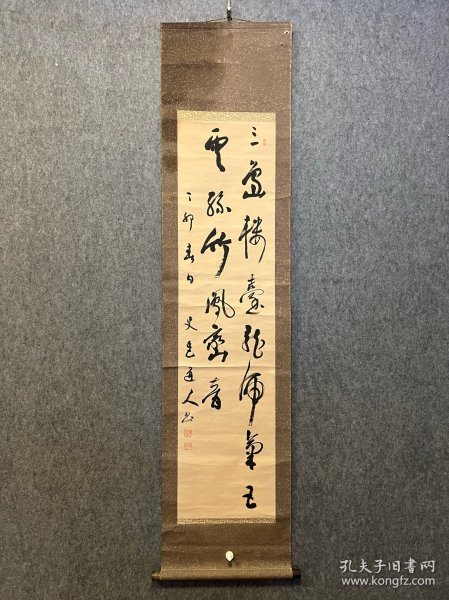 三島楼臺龍虎氣五
雲絲竹鳳鸞音
丁卯春日 史邑道人書
孔夫子旧书网
www.kongfz.com